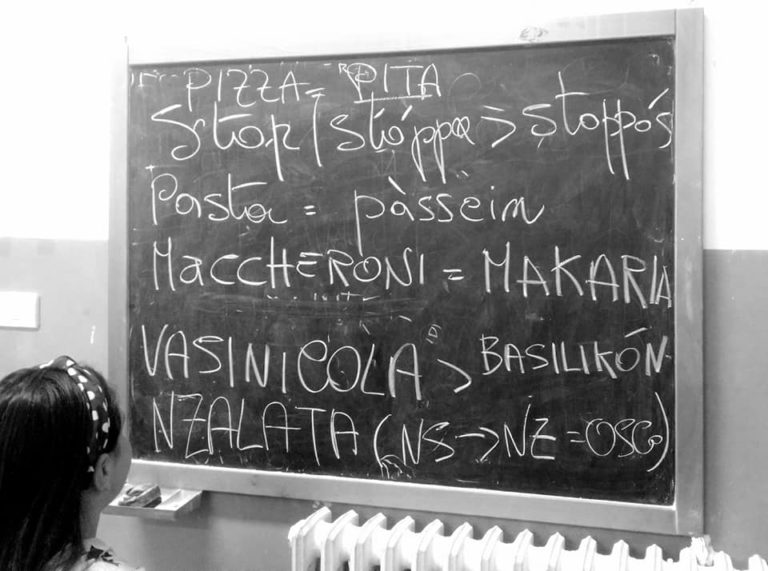 PIZZA = PITA
Stop / stóppa > stoppós
Pasta = pàssein
MACCHERONI = MAKARIA
VASINICOLA > BASILIKÓN
NZALATA (NS → NZ = OSCO)